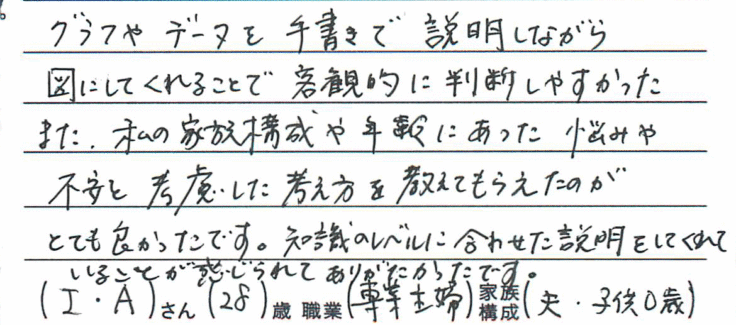 グラフや データを 手書きで 説明しながら
図にしてくれることで 客観的に判断しやすかった
また、私の家族構成や年齢にあった 悩みや
不安を 考慮した 考え方を教えてもらえたのが
とても良かったです。知識のレベルに合わせた説明をしてくれて
いることが感じられてありがたかったです。
(I・A)さん(28)歳 職業(専業主婦)家族構成(夫・子供0歳)